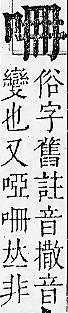 𠕋
俗字舊註音撒音
變也又啞𠱥𡘋非